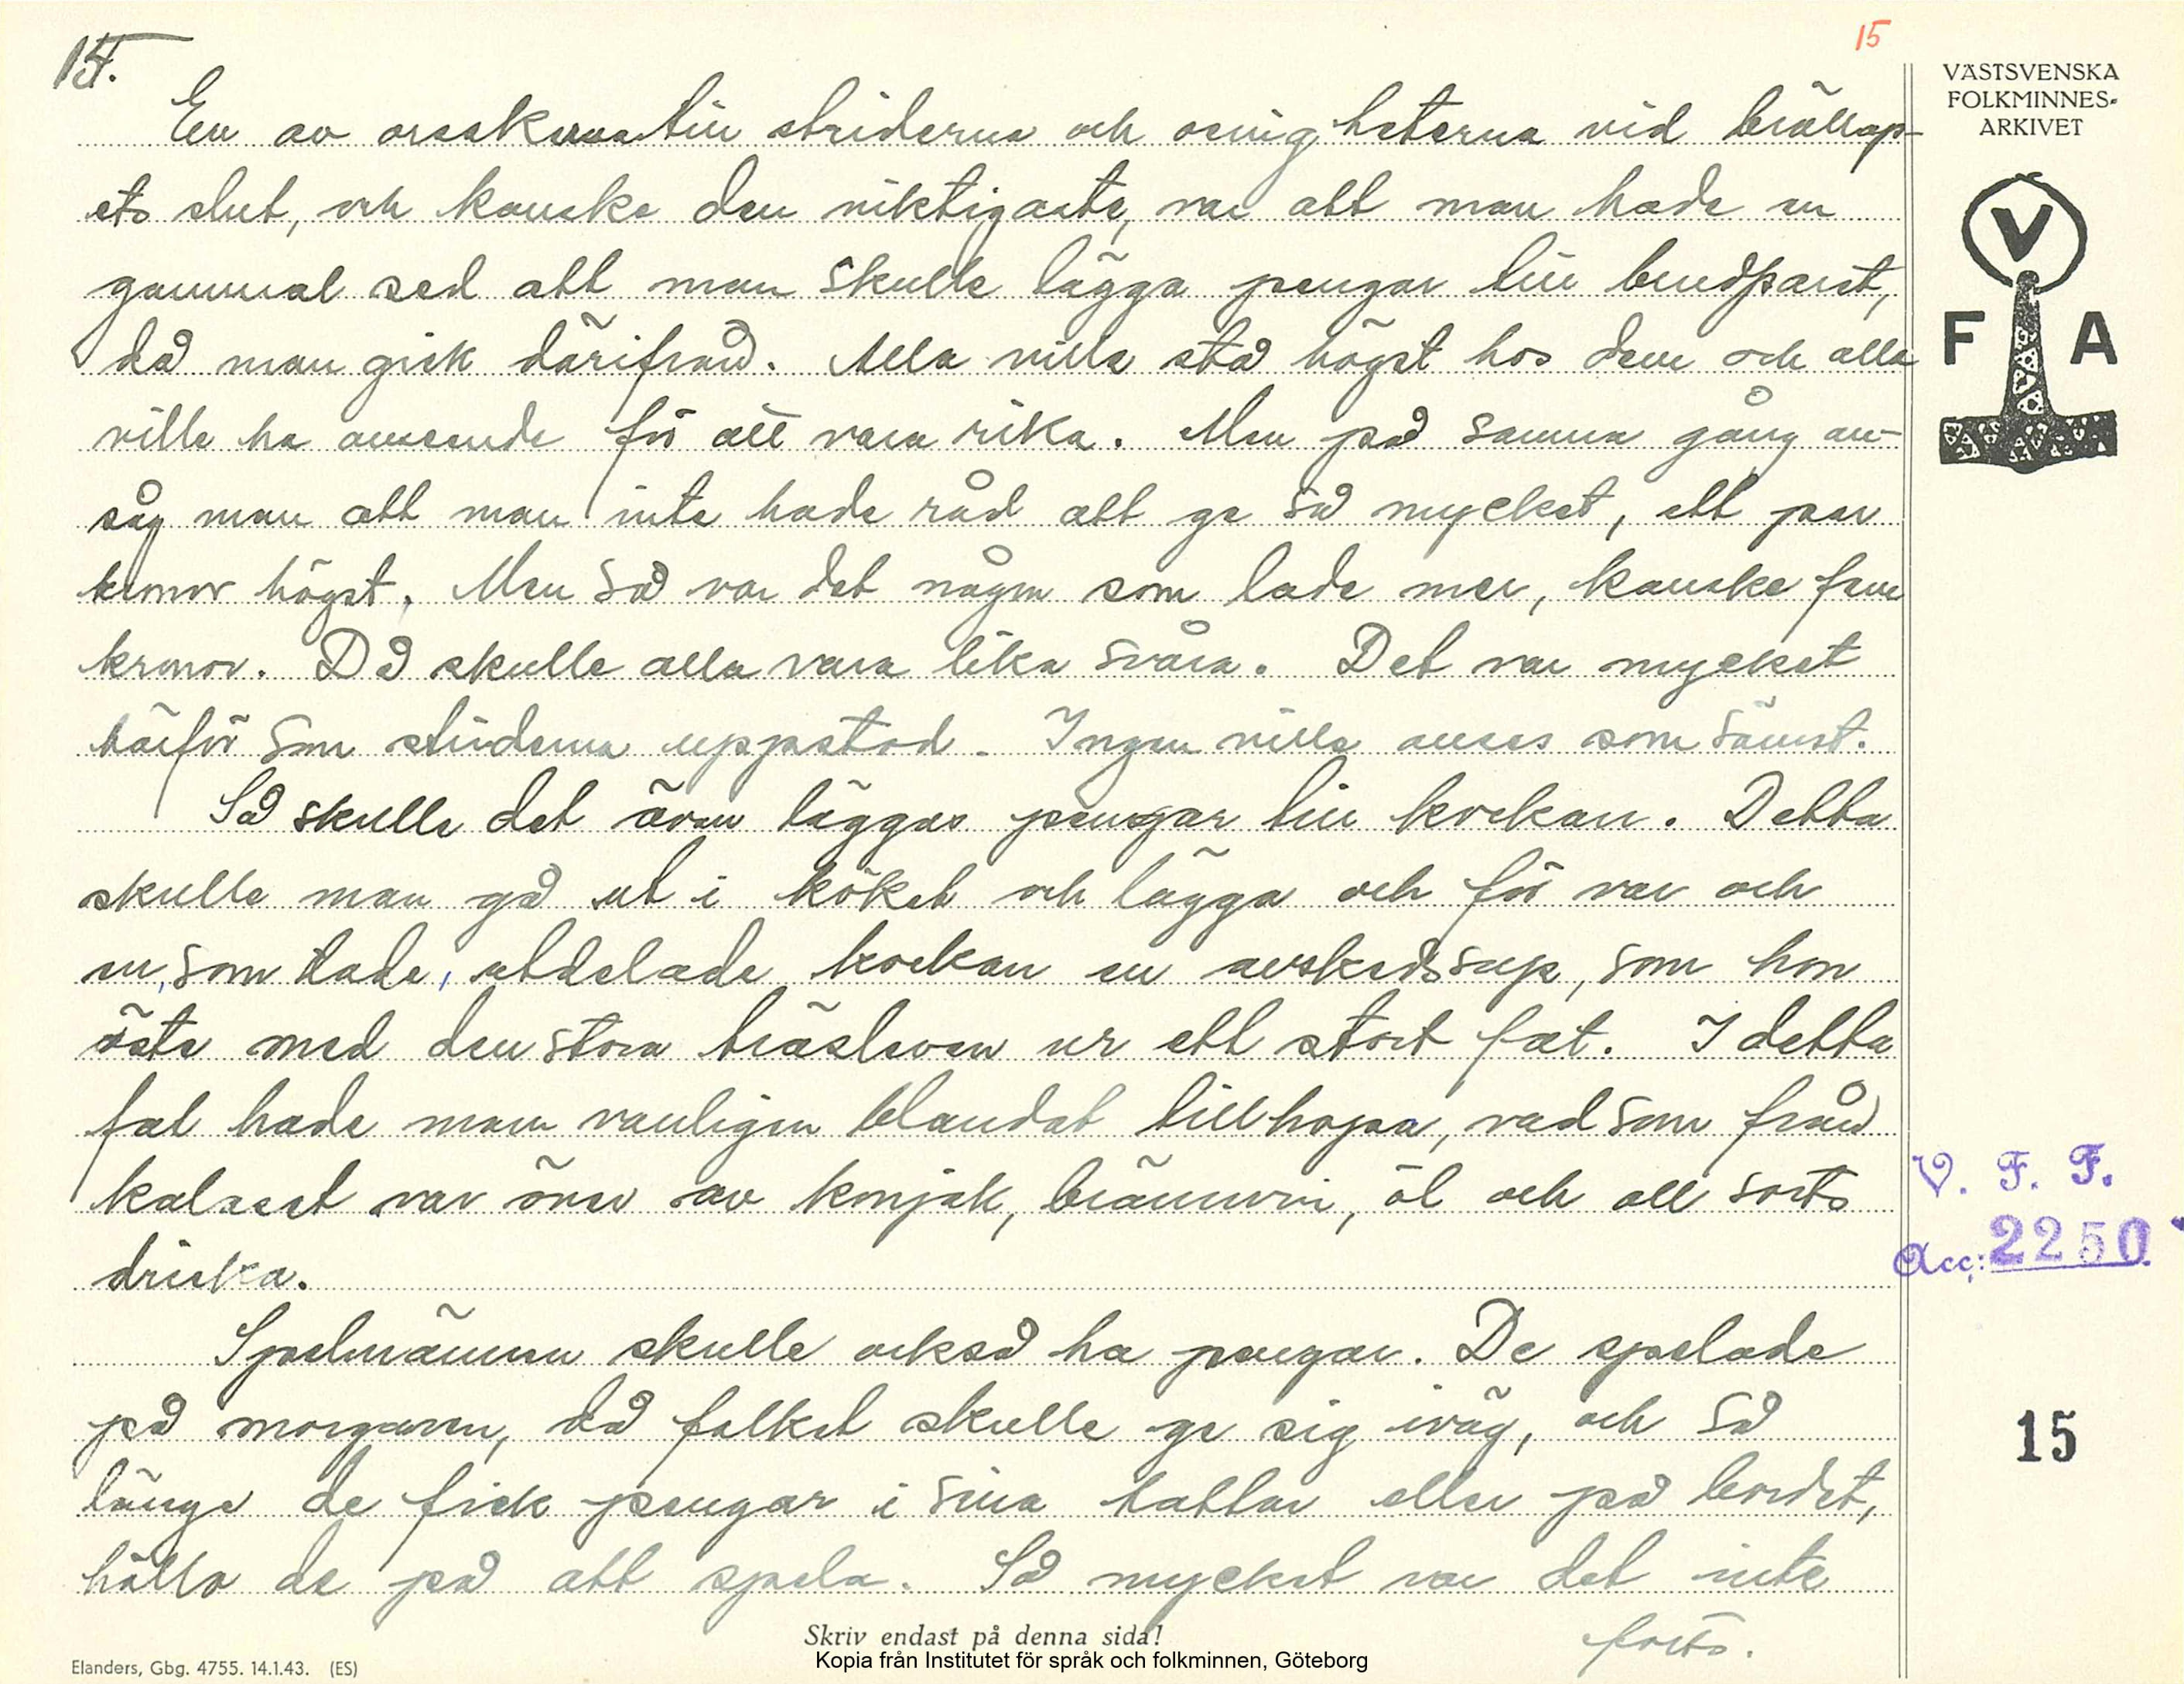 15.
15
VÄSTSVENSKA
FOLKMINNES-
ARKIVET
V
F A
En av orsakerna till striderna och oenigheterna vid bröllop-
ets slut, och kanske den viktigaste, var att man hade en
gammal sed att man skulle lägga pengar till brudparet,
då man gick därifrån. Alla ville stå högst hos dem och alla
ville ha anseende för att vara rika. Men på samma gång an-
såg man att man inte hade råd att ge så mycket, ett par
kronor högst. Men så var det någon som lade mer, kanske fem
kronor. Då skulle alla vara lika svåra. Det var mycket
härför som striderna uppstod. Ingen ville anses som sämst.
Så skulle det även läggas pengar till kockan. Detta
skulle man gå ut i köket och lägga och för var och
en, som lade, utdelade kockan en avskedssup, som hon
öste med den stora träsleven ur ett stort fat. I detta
fat hade man vanligen blandat tillhopa, vad som från
kalaset var över av konjak, brännvin, öl och all sorts
dricka.
Spelmännen skulle också ha pengar. De spelade
på morgonen, då folket skulle ge sig iväg, och så
länge de fick pengar i sina hattar eller på bordet,
höllo de på att spela. Så mycket var det inte
forts.
V. F. F.
Acc: 2250
15
Skriv endast på denna sida!
Kopia från Institutet för språk och folkminnen, Göteborg
Elanders, Gbg. 4755. 14.1.43. (ES)